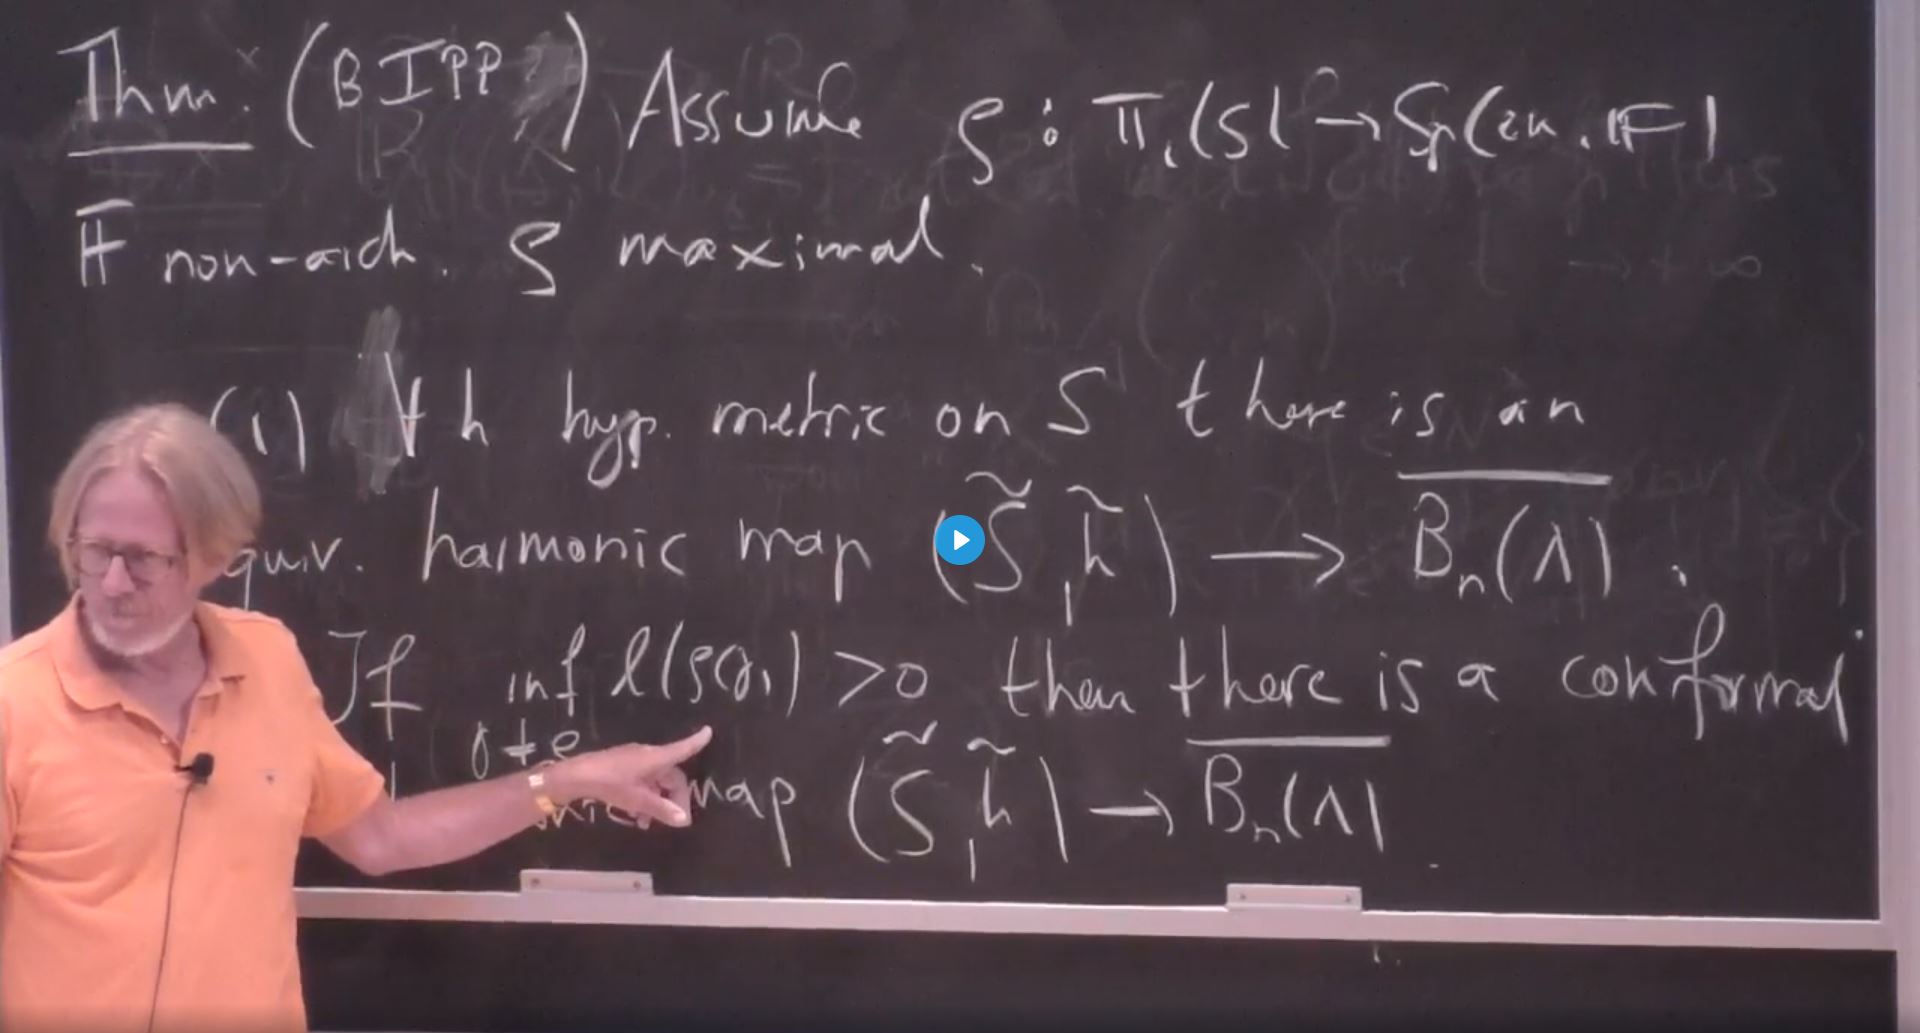 Thm. (BIPP) Assume ρ : π₁(S) → Sp(2n, F)
F non-arch. ρ maximal.
(1) ∀ h hyp. metric on S there is an
equiv. harmonic map (S̃, h̃) → \overline{B_n(Λ)}.
If inf l(ρ(γ)) > 0 then there is a conformal
γ ≠ e
map (S̃, h̃) → \overline{B_n(Λ)}